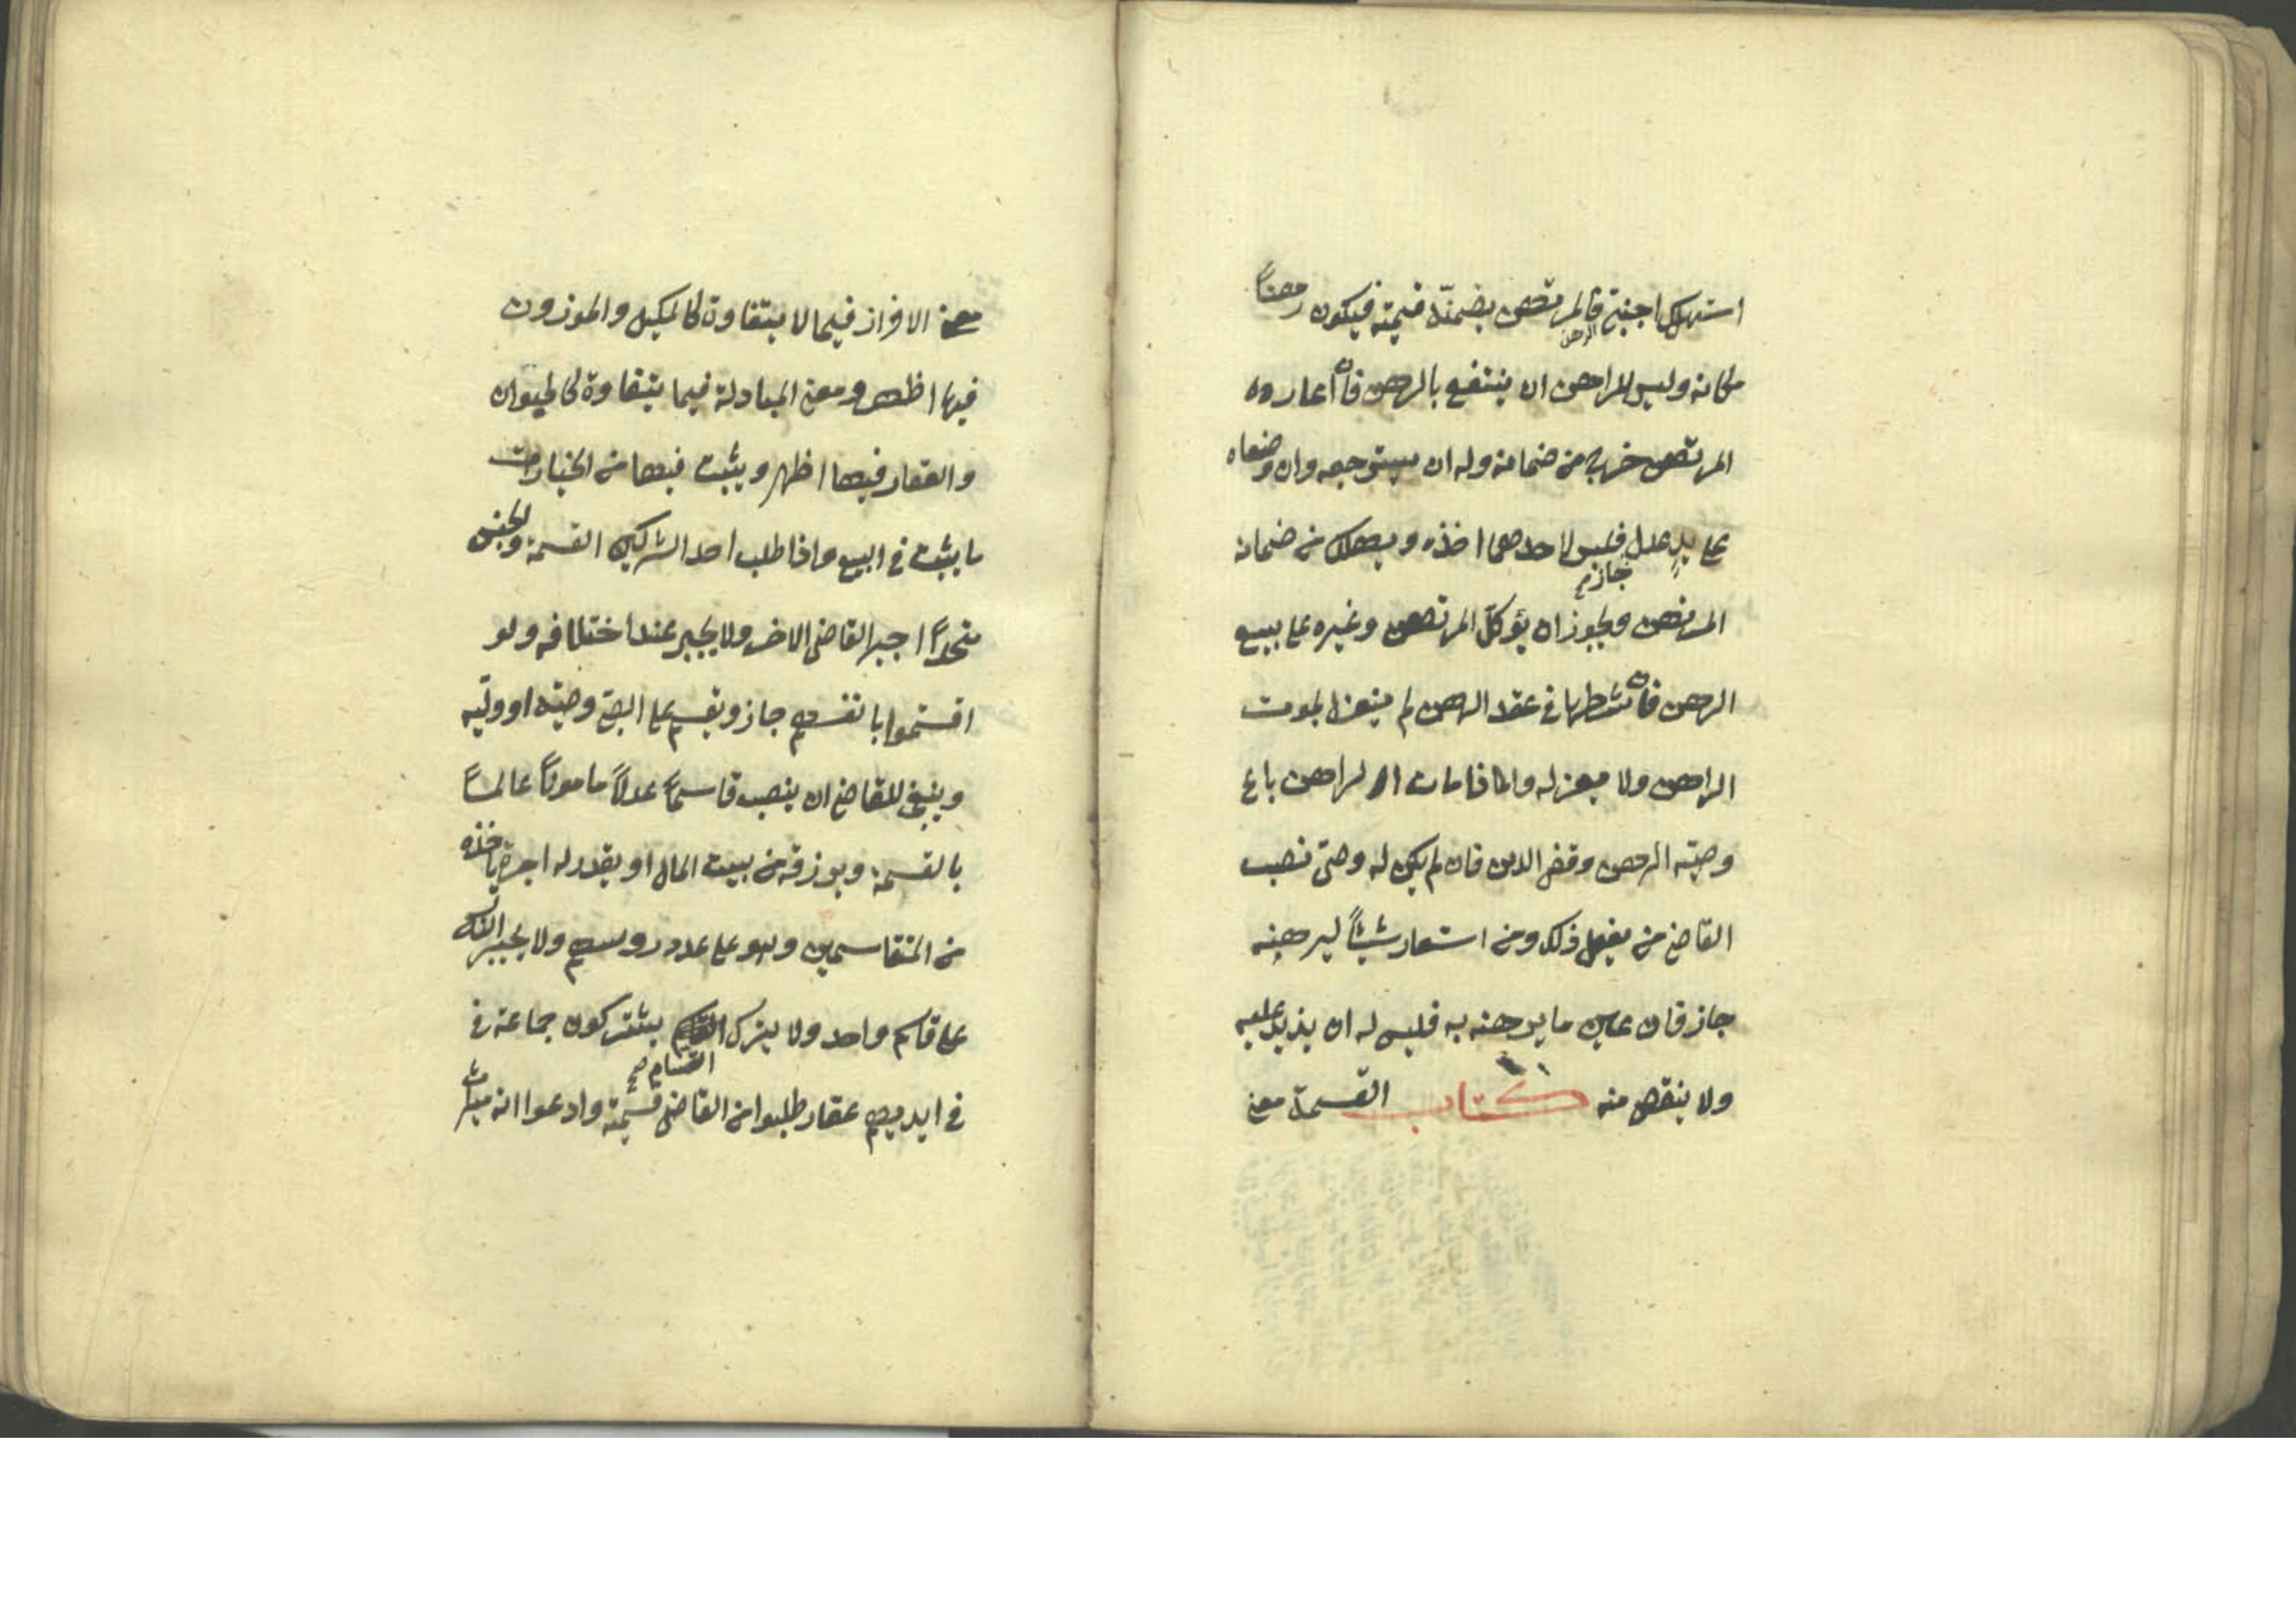 استهلك اجنبى فالمرتهن يضمنه قيمته فيكون رهنا
الرهن
مكانه وليس للراهن ان ينتفع بالرهن فان اعاره
المرتهن خرج من ضمانه وله ان يسترجعه وان وضعاه
على يد عدل فليس لاحدهما اخذه ويهلك من ضمان
جاز صح
المرتهن ويجوز ان يؤكل المرتهن وغيره على بيع
الرهن فان شطرها فى عقد الرهن لم ينعزل بموت
الراهن ولا بعزله واذا مات الراهن باع
وصيّه الرهن وقضى الدين فان لم يكن له وصىّ نصب
القاضى من يفعل ذلك ومن استعار شيئاً ليرهنه
جاز فان عين ما يرهنه به فليس له ان يزيد عليه
ولا ينقص منه كتاب القسمة معنى
معنى الافراز فيما لا يتفاوة كالمكيل والموزون
فيها اظهر ومعنى المبادلة فيما يتفاوة كالحيوان
والعقار فيها اظهر ويثبت فيها من الخيارات
ما يثبت فى البيع واذا طلب احد الشركين القسمة والجنس
متحداً اجبر القاضى الاخر ولا يجبر عند اختلافه ولو
اقتسموا بانفسهم جاز ويقسم على الصبى وصيّه او وليّه
وينبغى للقاضى ان ينصب قاسماً عدلاً ماموناً عالماً
بالقسمة ويرزقه من بيت المال او يقدر له اجرة ياخذه
من المتقاسمين وهو على عدد روسهم ولا يجبر الناس
على قاسم واحد ولا يترك يشتركون جماعة فى
القسام صح
فى ايديهم عقار طلبوا من القاضى قسمته وادعوا انه ميراث